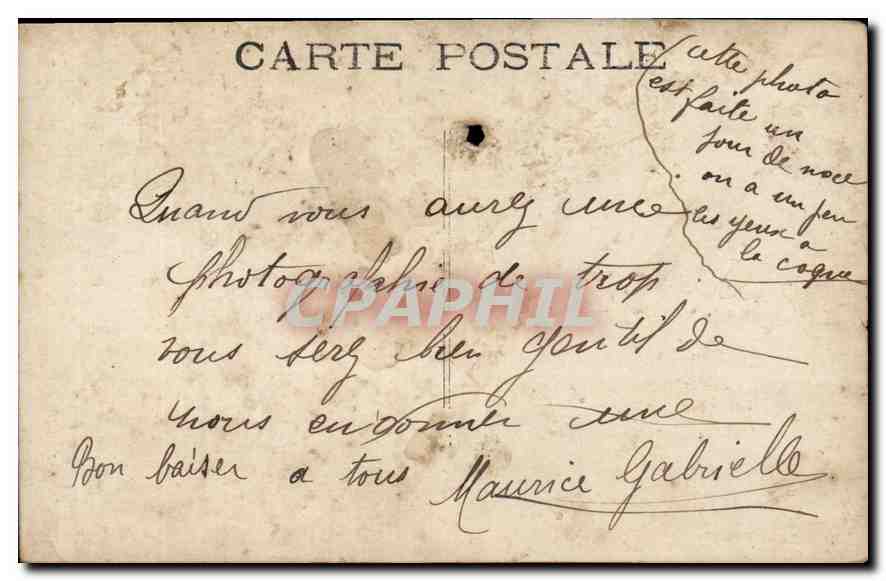 CARTE POSTALE
cette photo
est faite un
jour de noce
on a un peu
les yeux a
la coque
Quand vous aurez une
photographie de trop
vous serez bien gentil de
nous en donner une
Bon baiser a tous Maurice Gabrielle
CPAPHIL